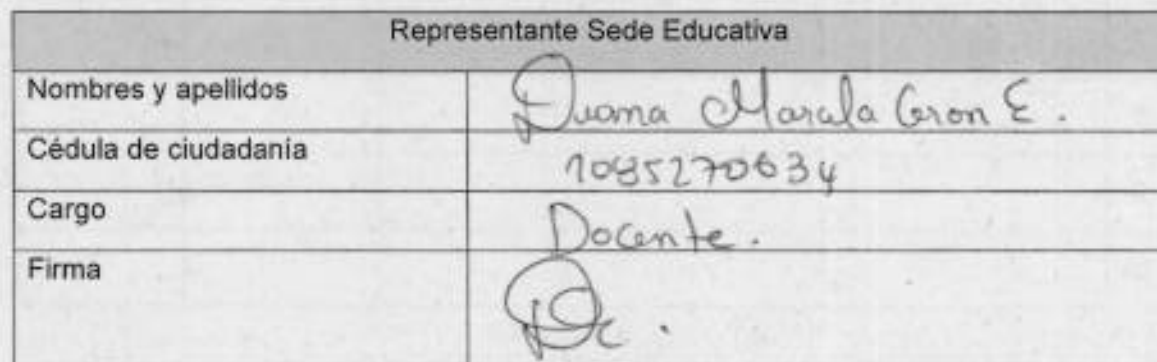 Representante Sede Educativa
Nombres y apellidos Diana Marcela Ceron E.
Cédula de ciudadanía 1085270634
Cargo Docente.
Firma